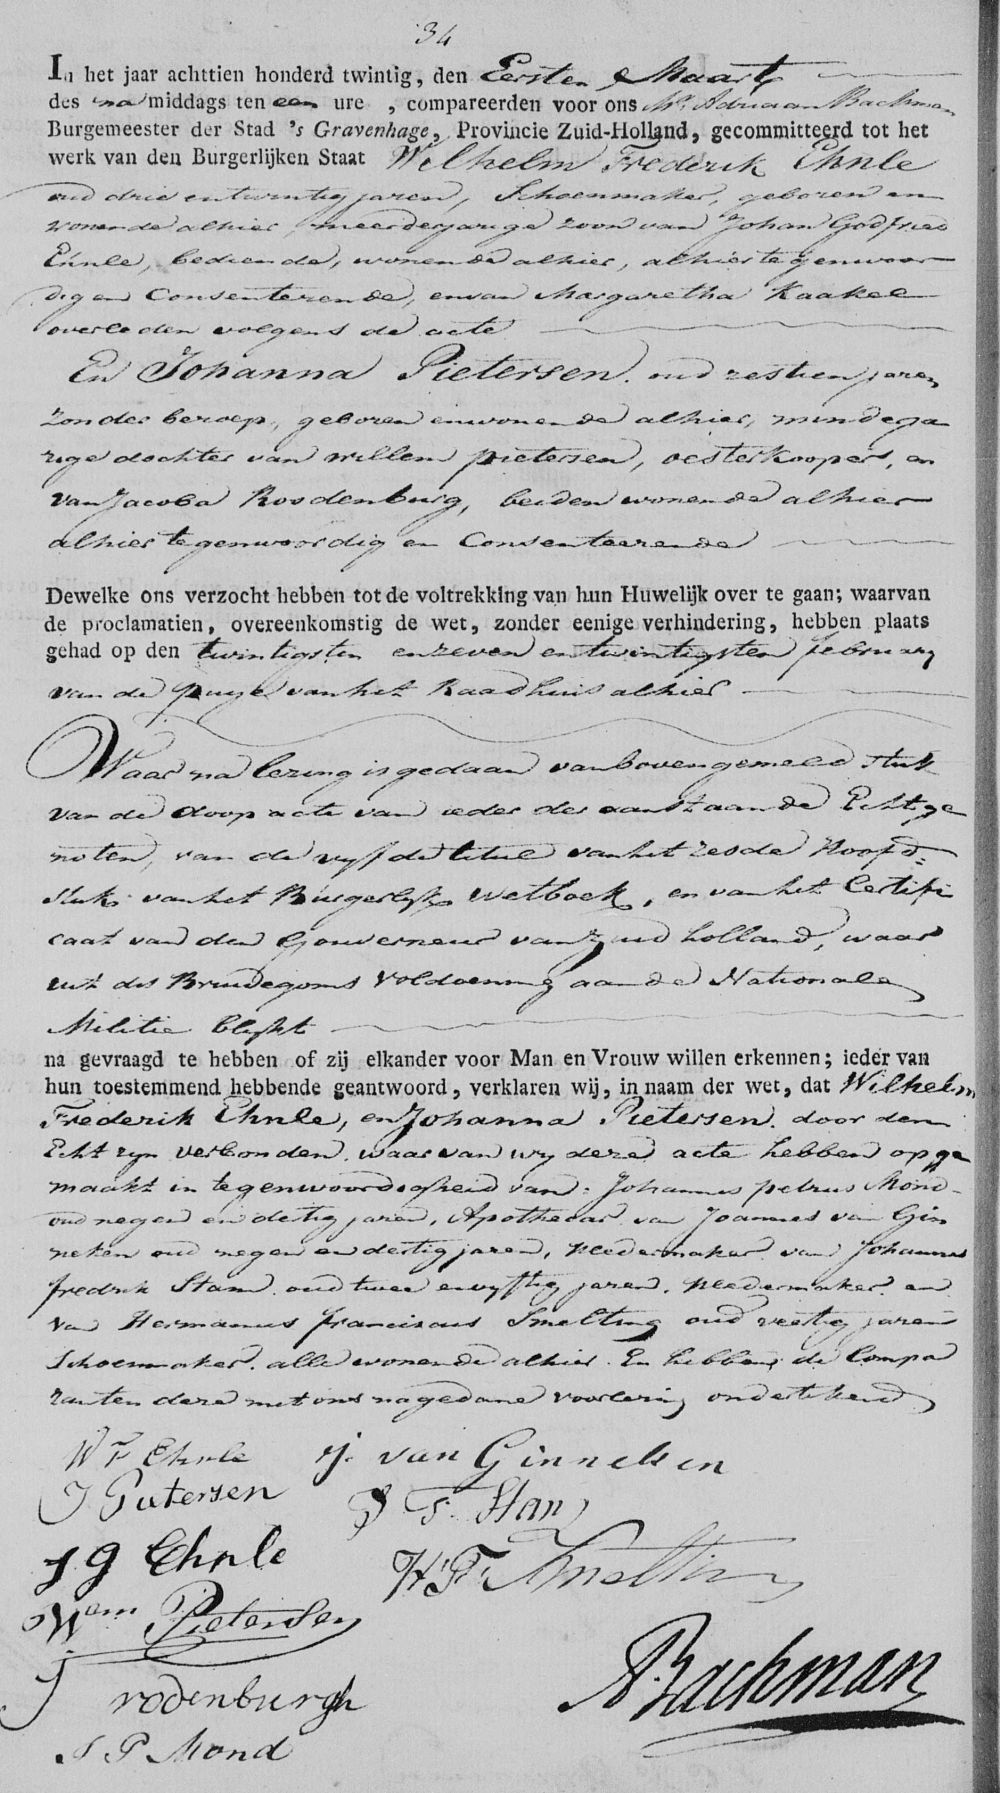 34
In het jaar achttien honderd twintig, den Eersten Maart
des na middags ten een ure , compareerden voor ons Mr. Adriaan Bachman
Burgemeester der Stad 's Gravenhage, Provincie Zuid-Holland, gecommitteerd tot het
werk van den Burgerlijken Staat Wilhelm Frederik Ehnle
oud drie entwintig jaren, Schoenmaker, geboren en
wonende alhier, meerderjarige zoon van Johan Godfried
Ehnle, bediende, wonende alhier, alhier tegenwoor
dig en Consenterende, en van Margaretha Kaakel
overleden volgens de acte
En Johanna Pietersen. oud zestien jaren
zonder beroep, geboren enwonende alhier, minderja
rige dochter van willem pietersen, oesterkooper, en
van Jacoba Roodenburg, beiden wonende alhier
alhier tegenwoordig en Consenteerende
Dewelke ons verzocht hebben tot de voltrekking van hun Huwelijk over te gaan; waarvan
de proclamatien, overeenkomstig de wet, zonder eenige verhindering, hebben plaats
gehad op den twintigsten enzeven entwintigsten februarij
van de puije van het Raadhuis alhier
Waar na lezing is gedaan van bovengemeld stuk
van de doop acte van ieder der aanstaande Echtge
noten, van de vyfde titul van het zesde Hoofd=
stuk van het Burgerlyk Wetboek, en van het Certifi
caat van den Gouverneur van Zuid holland, waar
uit des Bruidegoms Voldoening aan de Nationale
Militie blykt
na gevraagd te hebben of zij elkander voor Man en Vrouw willen erkennen; ieder van
hun toestemmend hebbende geantwoord, verklaren wij, in naam der wet, dat Wilhelm
Frederik Ehnle, en Johanna Pietersen. door den
Echt zyn verbonden. waar van wy deze acte hebben opge
maakt in tegenwoordigheid van: Johannes petrus Mond
oud negen en dertig jaren, Apothecar van Joannes van Gin
neken oud negen en dertig jaren, kledermaker van Johannes
fredrik Stam. oud twee envyftig jaren. kledermaker en
van Hermanus franciscus Smelting oud veertig jaren
Schoenmaker. alle wonende alhier. En hebben de Compa
ranten deze met ons nagedane voorlezing ondertekend
W F Ehnle J. van Ginneken
J Pietersen J F. Stam
J G Ehnle H. F. Smelting
Wem Pietersen
J rodenburgh
A Bachman
J P Mond